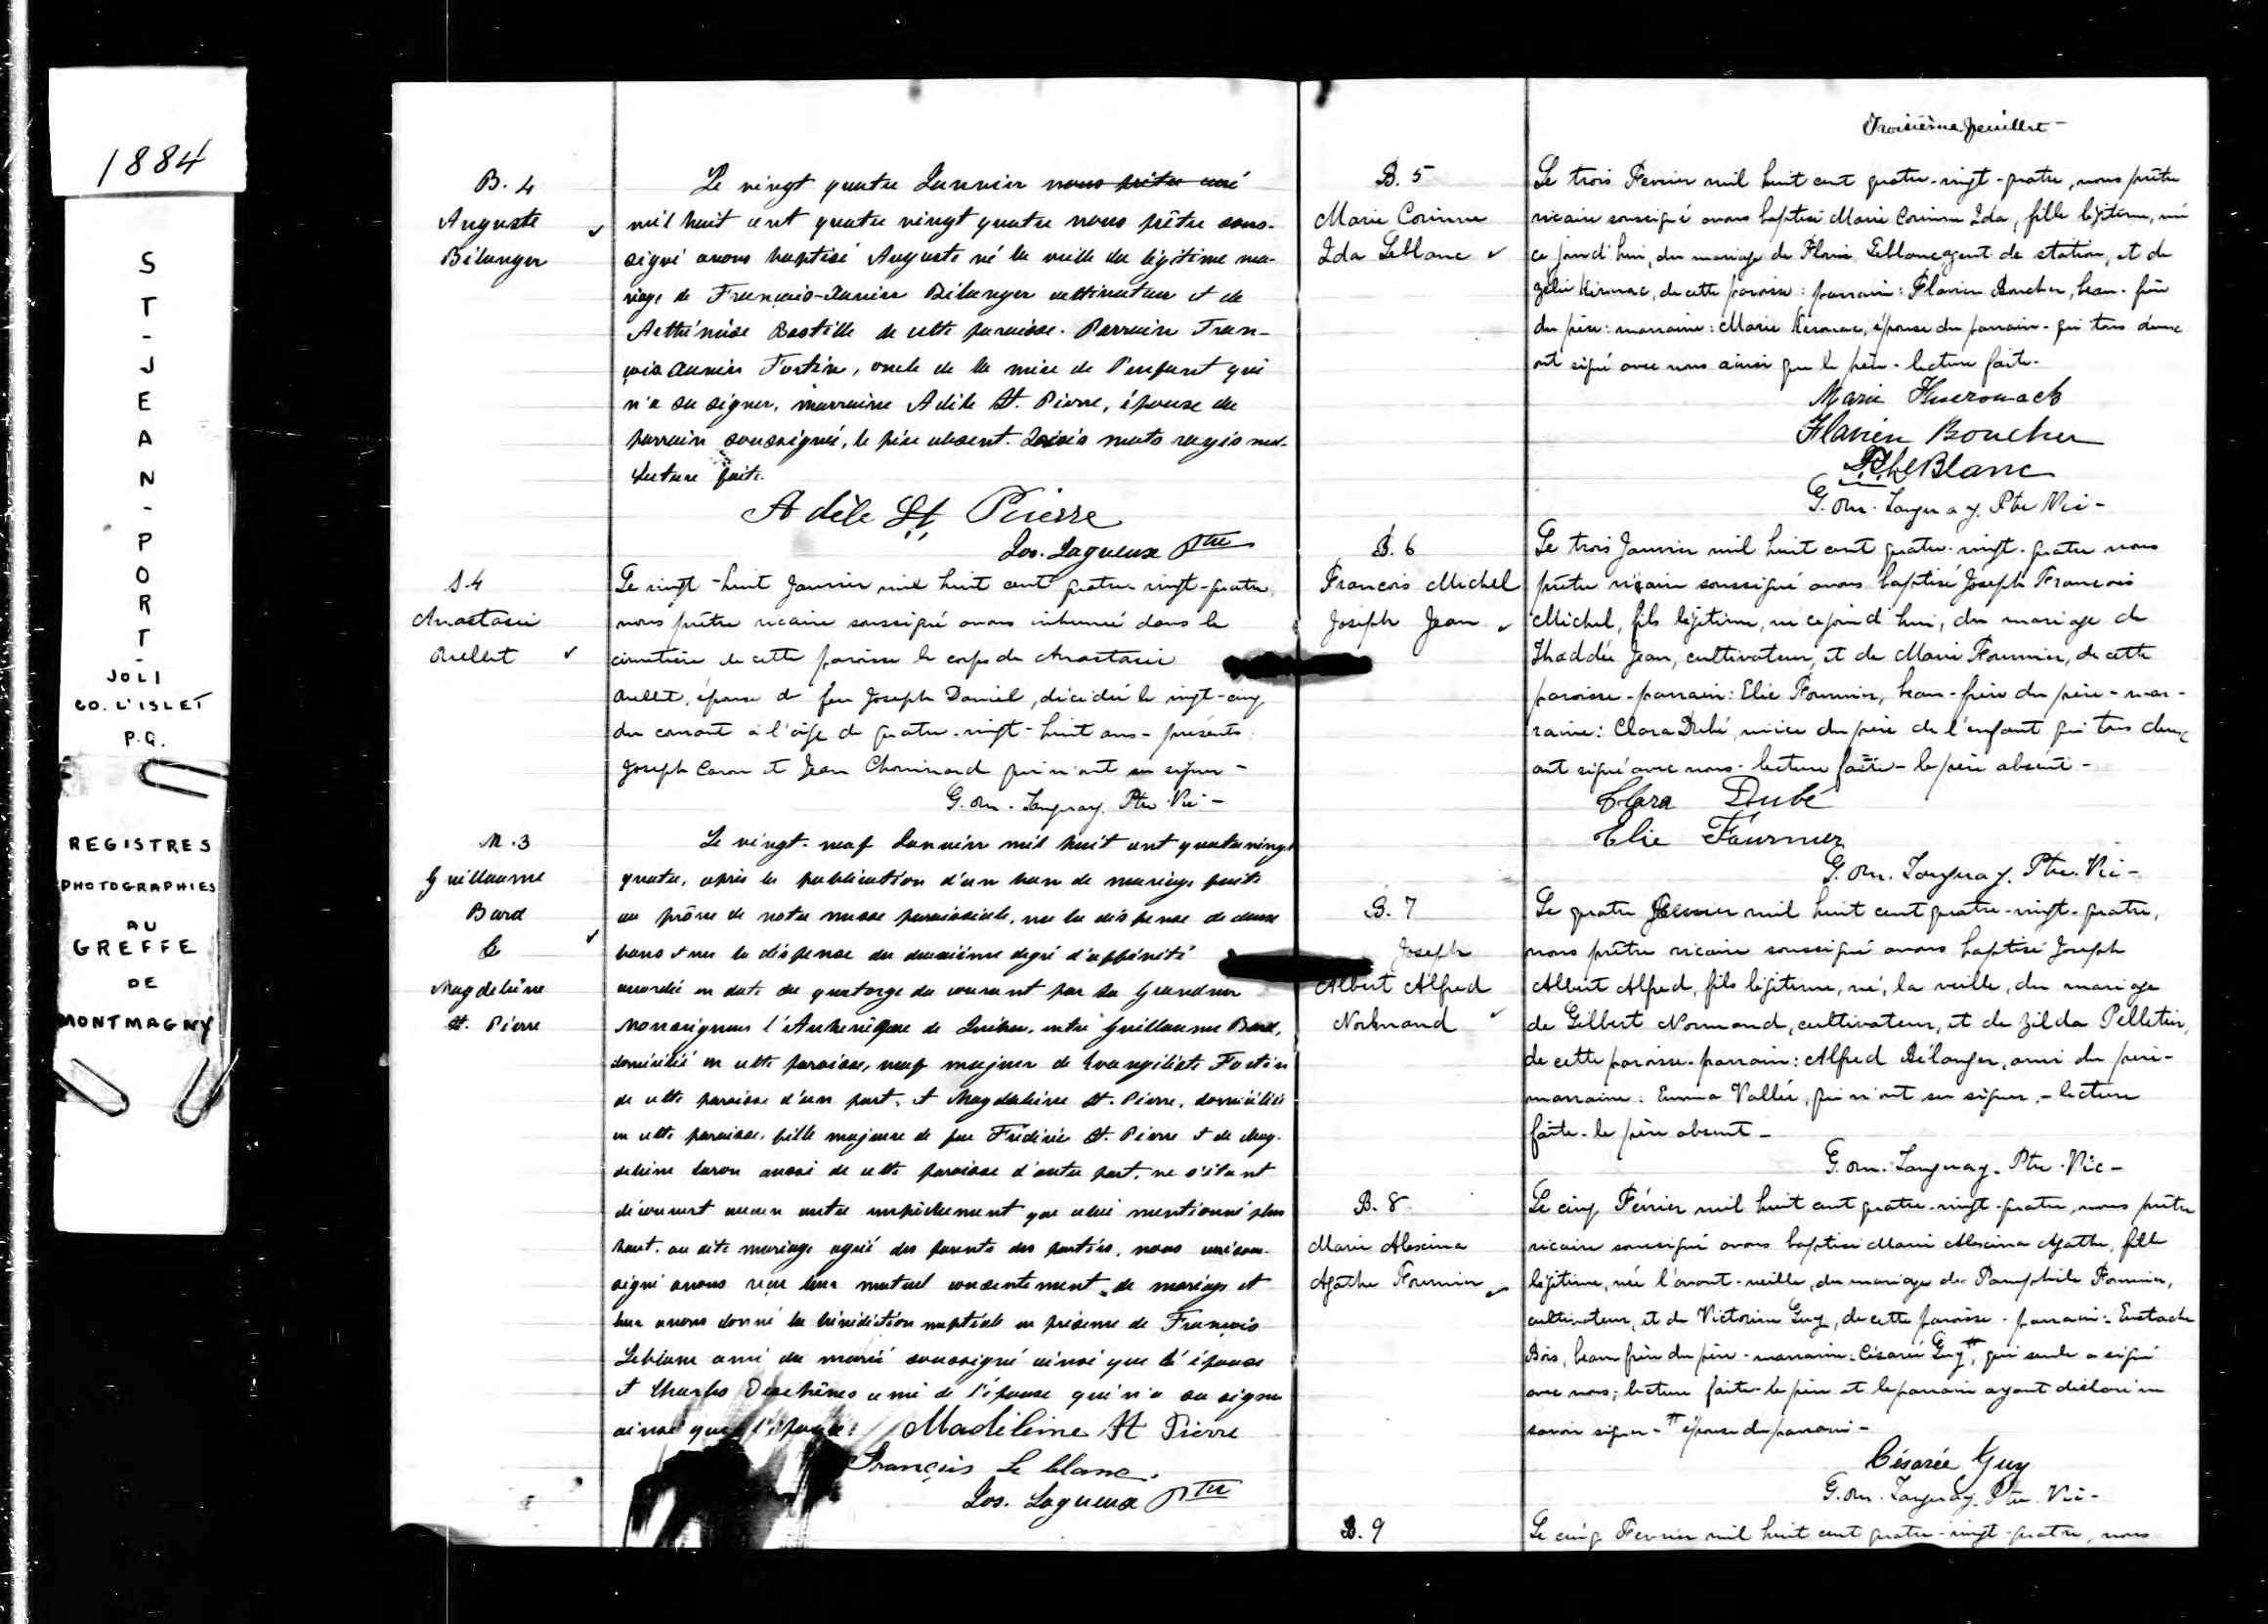 1884
ST-JEAN-PORT-
JOLI
CO. L'ISLET
P.Q.
REGISTRES
PHOTOGRAPHIES
AU
GREFFE
DE
MONTMAGNY
B. 4
Auguste
Bélanger
Le vingt quatre Janvier nous prêtre curé
mil huit cent quatre vingt quatre nous prêtre sous-
signé avons baptisé Auguste né la veille du légitime ma-
riage de François-Xavier Bélanger cultivateur et de
Arthémise Bastille de cette paroisse. Parrain Fran-
çois Xavier Fortin, oncle de la mère de l'enfant qui
n'a su signer, marraine Adèle St. Pierre, épouse du
parrain soussignée, le père absent. Trois mots rayés nuls
Lecture faite.
Adèle St Pierre
Jos. Lagueux Ptre
S. 4
Anastasie
Ouellet
Le vingt-huit Janvier mil huit cent quatre vingt-quatre
nous prêtre vicaire soussigné avons inhumé dans le
cimetière de cette paroisse le corps de Anastasie
Ouellet, épouse de feu Joseph Daniel, décédée le vingt-cinq
du courant à l'âge de quatre-vingt-huit ans - présents:
Joseph Caron et Jean Chouinard qui n'ont su signer -
G. Om. Tanguay. Ptre Vic -
M. 3
Guillaume
Bard
&
Magdeleine
St. Pierre
Le vingt-neuf Janvier mil huit cent quatre vingt
quatre, après la publication d'un ban de mariage faite
au prône de notre messe paroissiale, vu la dispense de deux
bans et vu la dispense du deuxième degré d'affinité
accordée en date du quatorze du courant par Sa Grandeur
Monseigneur l'Archevêque de Québec, entre Guillaume Bard,
domicilié en cette paroisse, veuf majeur de Evangéliste Fortin
de cette paroisse d'une part, et Magdeleine St. Pierre, domiciliée
en cette paroisse, fille majeure de feu Frédéric St. Pierre et de Mag-
deleine Caron aussi de cette paroisse d'autre part, ne s'étant
découvert aucun autre empêchement que celui mentionné plus
haut, au dit mariage agréé des parents des parties, nous curé sous-
signé avons reçu leur mutuel consentement de mariage et
leur avons donné la bénédiction nuptiale en présence de François
Leblanc ami du marié soussigné ainsi que l'épouse
et Charles Deschênes ami de l'épouse qui n'a su signer
ainsi que l'époux. Madeleine St Pierre
François Le blanc.
Jos. Lagueux Ptre
Troisième feuillet -
B. 5
Marie Corinne
Ida Leblanc
Le trois Fevrier mil huit cent quatre-vingt-quatre, nous prêtre
vicaire soussigné avons baptisé Marie Corinne Ida, fille légitime, née
ce jourd'hui, du mariage de Leblanc agent de station, et de
Zélie Kirouac, de cette paroisse: parrain: Flavien Boucher, beau-frère
du père: marraine: Marie Kerouac, épouse du parrain - qui tous deux
ont signé avec nous ainsi que le père - lecture faite -
Marie
Flavien Boucher
LeBlanc
G. Om. Tanguay. Ptre Vic -
B. 6
François Michel
Joseph Jean
Le trois Janvier mil huit cent quatre-vingt-quatre nous
prêtre vicaire soussigné avons baptisé Joseph François
Michel, fils légitime, né ce jourd'hui, du mariage de
Thaddée Jean, cultivateur, et de Marie Fournier, de cette
paroisse - parrain: Elie Fournier, beau-frère du père - mar-
raine: Clara Dubé, nièce du père de l'enfant qui tous deux
ont signé avec nous - lecture faite - le père absent -
Clara Dubé
Elie Fournier
G. Om. Tanguay. Ptre. Vic -
B. 7
Joseph
Albert Alfred
Normand
Le quatre Fevrier mil huit cent quatre-vingt-quatre,
nous prêtre vicaire soussigné avons baptisé Joseph
Albert Alfred, fils légitime, né, la veille, du mariage
de Gilbert Normand, cultivateur, et de Zilda Pelletier,
de cette paroisse - parrain: Alfred Bélanger, ami du père -
marraine: Emma Vallée, qui n'ont su signer, - lecture
faite - le père absent -
G. Om. Tanguay. Ptre. Vic -
B. 8
Marie Alexina
Agathe Fournier
Le cinq Février mil huit cent quatre-vingt-quatre, nous prêtre
vicaire soussigné avons baptisé Marie Alexina Agathe, fille
légitime, née l'avant-veille, du mariage de Pamphile Fournier,
cultivateur, et de Victorine Guy, de cette paroisse - parrain: Eustache
Bois, beau frère du père - marraine: Césarée Guy #, qui seule a signé
avec nous; lecture faite - le père et le parrain ayant déclaré ne
savoir signer - # épouse du parrain -
Césarée Guy
G. Om. Tanguay. Ptre. Vic -
B. 9
Le cinq Fevrier mil huit cent quatre-vingt-quatre, nous